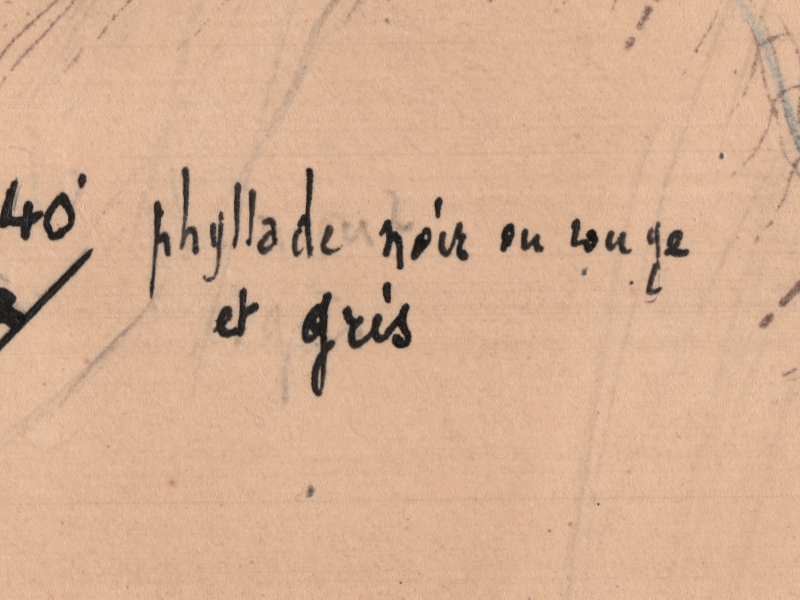 40
phyllade noir ou rouge
et gris